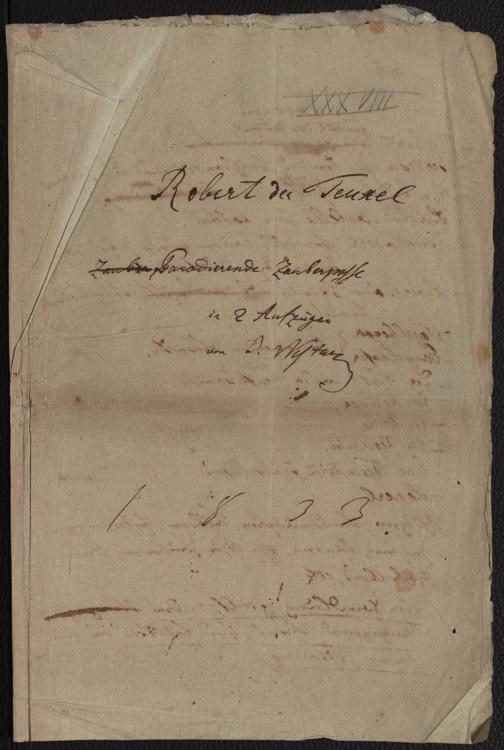 XXXVIII
Robert der Teuxel
Zauber Parodierende Zauberposse
in 2 Aufzügen
von J. Nestroy
1833